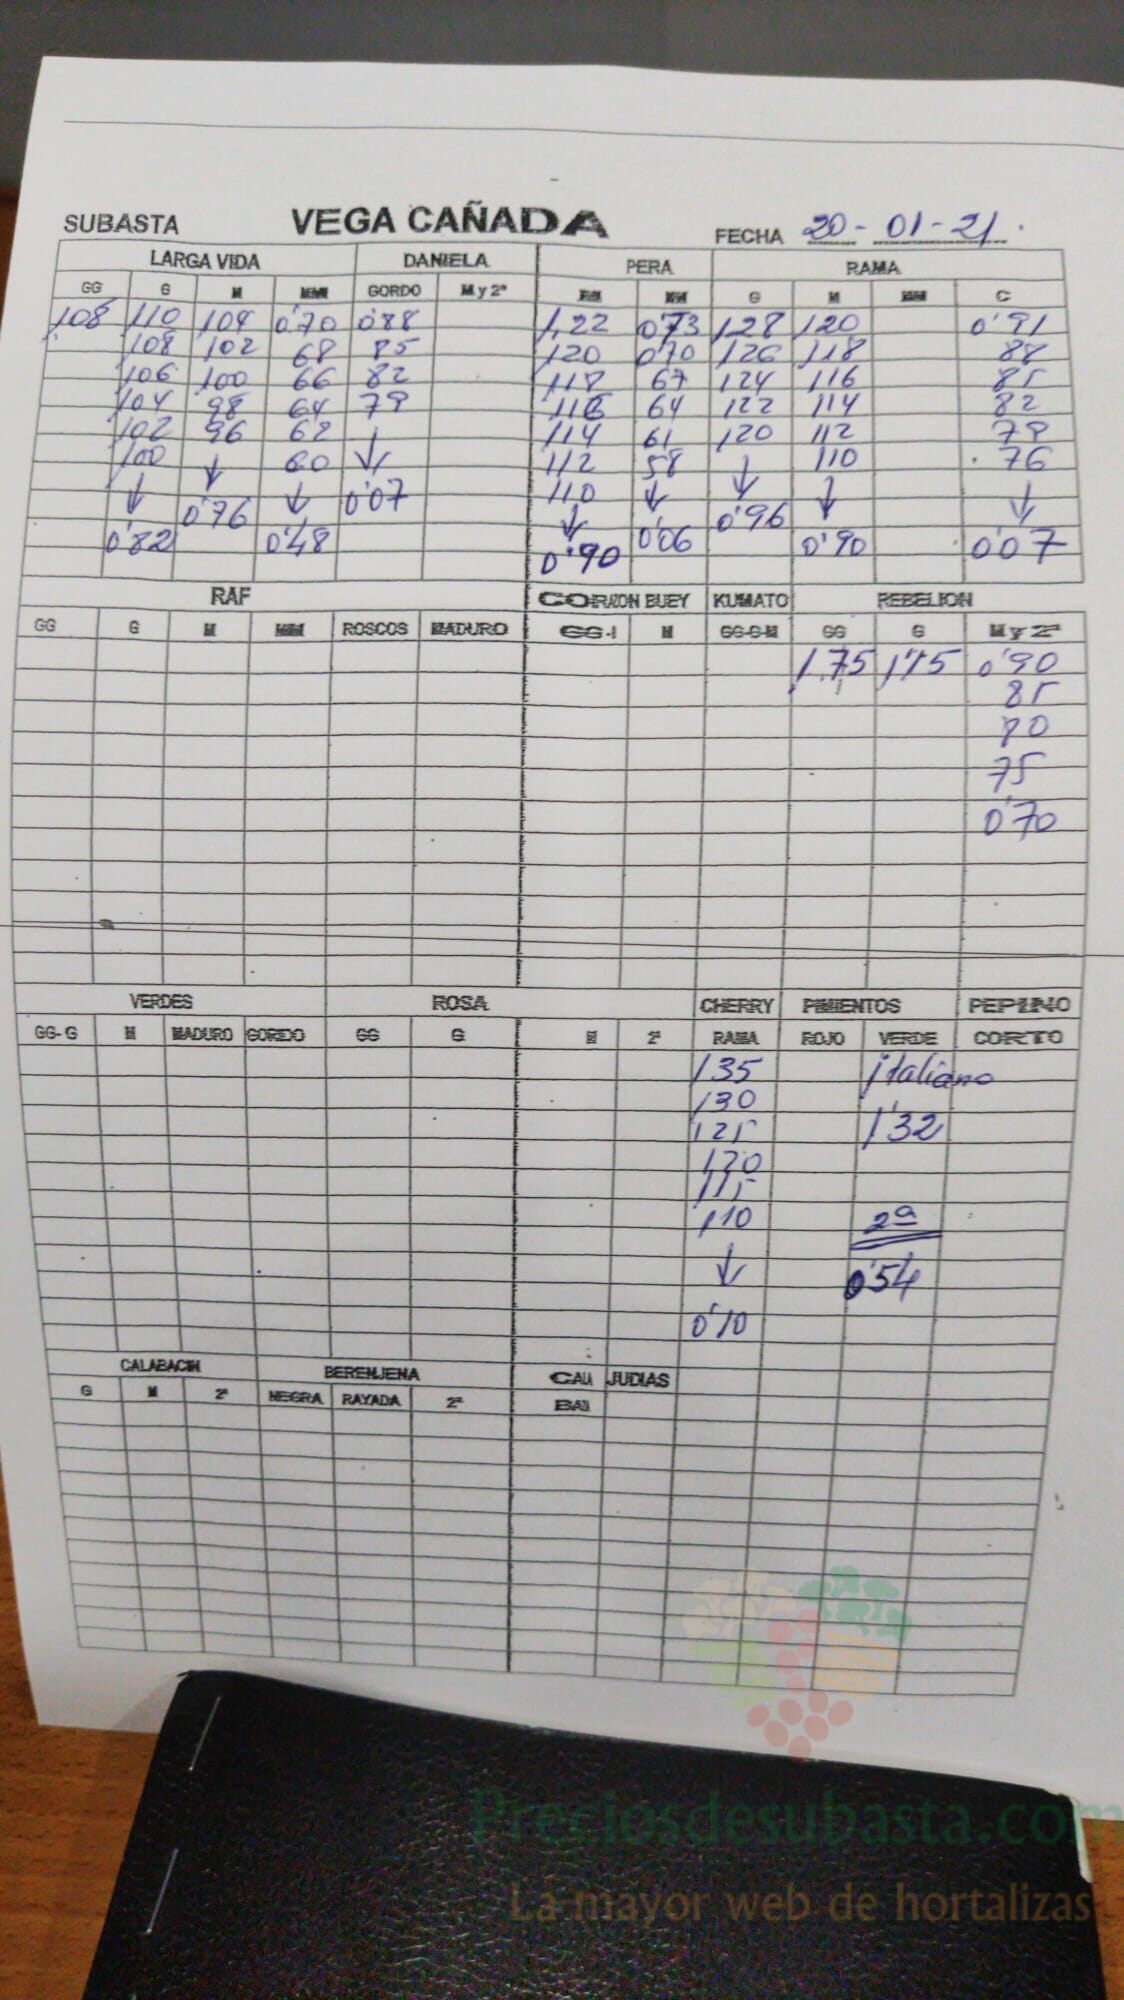 SUBASTA VEGA CAÑADA FECHA 20-01-21.
LARGA VIDA DANIELA PERA RAMA
GG G M MM GORDO M y 2ª M MM G M MM C
108 110 104 0'70 0'88 1,22 0'73 128 120 0'91
108 102 68 85 120 0'70 126 118 88
106 100 66 82 118 67 124 116 85
104 98 64 79 116 64 122 114 82
102 96 62 ↓ 114 61 120 112 79
100 ↓ 60 112 58 ↓ 110 76
↓ 0'76 ↓ 0'07 110 ↓ 0'96 ↓ ↓
0'82 0'48 ↓ 0'06 0'90 0'07
0'90
RAF CORAZON BUEY KUMATO REBELION
GG G M MM ROSCOS MADURO GG-I M GG-G-M GG G M y 2ª
1.75 1'15 0'90
85
80
75
0'70
VERDES ROSA CHERRY PIMIENTOS PEPINO
GG-G M MADURO GORDO GG G M 2ª RAMA ROJO VERDE CORTO
135 italiano
130
125 1'32
120
115
110 2ª
↓ 0'54
0'10
CALABACIN BERENJENA CALA JUDIAS
G M 2ª NEGRA RAYADA 2ª BAZ
Preciosdesubasta.com
La mayor web de hortalizas